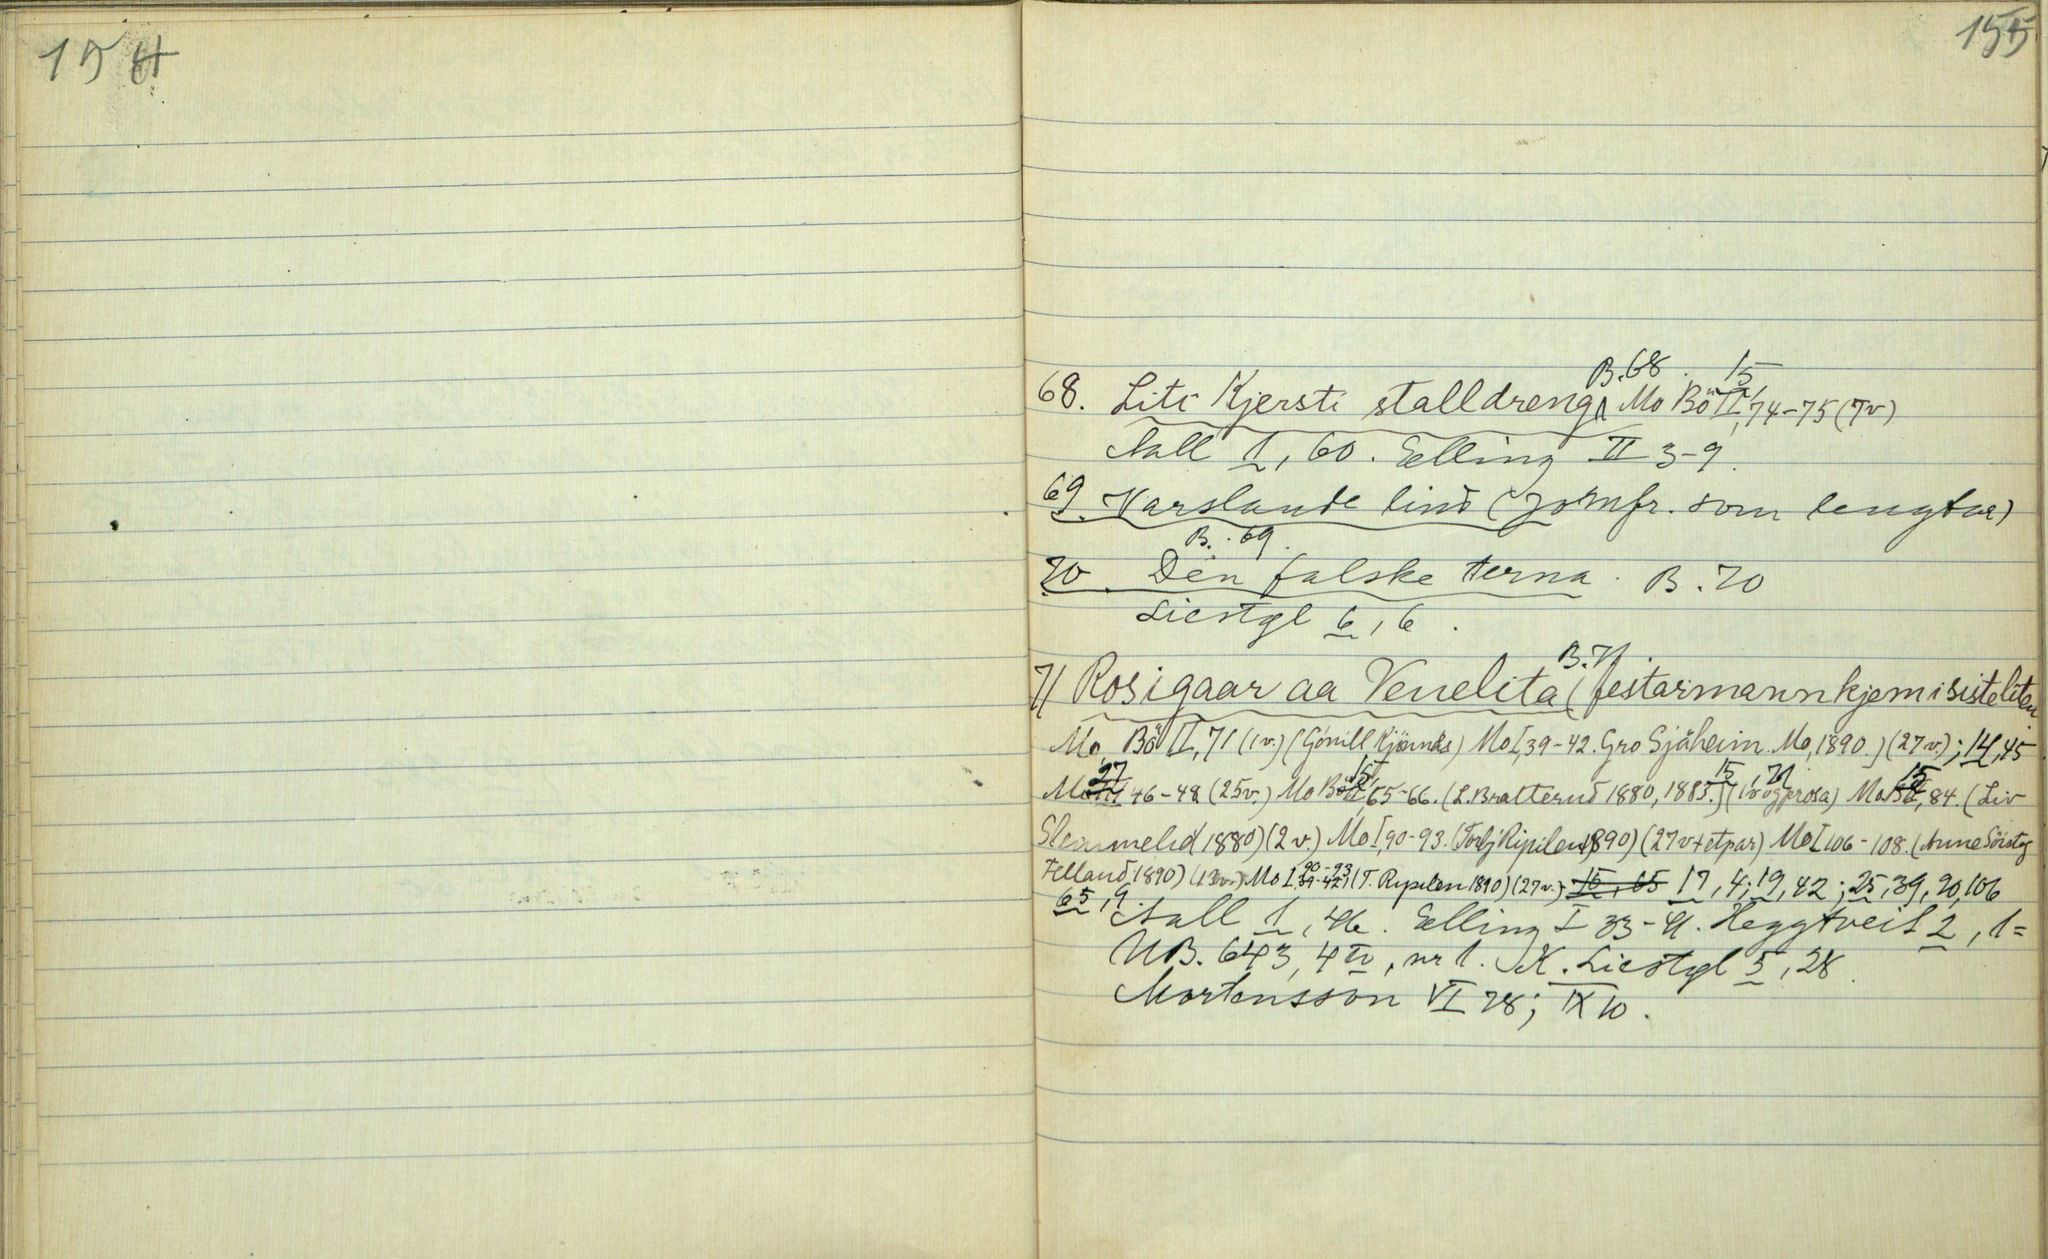 154
155
B. 68. 15
68. Liti Kjersti stalldreng Mo Bö II, 74-75 (7v)
Aall 1, 60. Elling II 3-9.
69. Varslande lind (Jomfr. som
B. 69.
70. Den falske terna. B. 70
Liestøl 6, 6.
B. 71.
71 Rosigaar aa Venelita (festarmann kjem i siste liten
Mo, Bö II, 71 (1v.) (Gónill Kjönnås) Mo I, 39-42. Gro Sjåheim. Mo, 1890.) (27 v.); 14, 45
27 15 15, 71 15
46-48 (25v.) Mo Bö 65-66. (L. Bratterud 1880, 1883.) (1v og prosa) Mo Bö, 84. (Liv
Slemmelid 1880) (2 v.) Mo I, 90-93. (Torbj Ripilen 1890) (27 v + et par) Mo I 106-108. (Anne
90-93
Felland, 1890) (13v.) Mo I, 39-42, (T. Ripilen 1890) (27v.) 15, 65 17, 4; 19, 42; 25, 39, 90, 106
65, 9.
Aall 1, 46. Elling I 33-41. Heggtveit 2, 1 =
UB. 643, 4 IV, nr 1. K. Liestøl 5, 28.
Mortensson VI 28; IX 10.